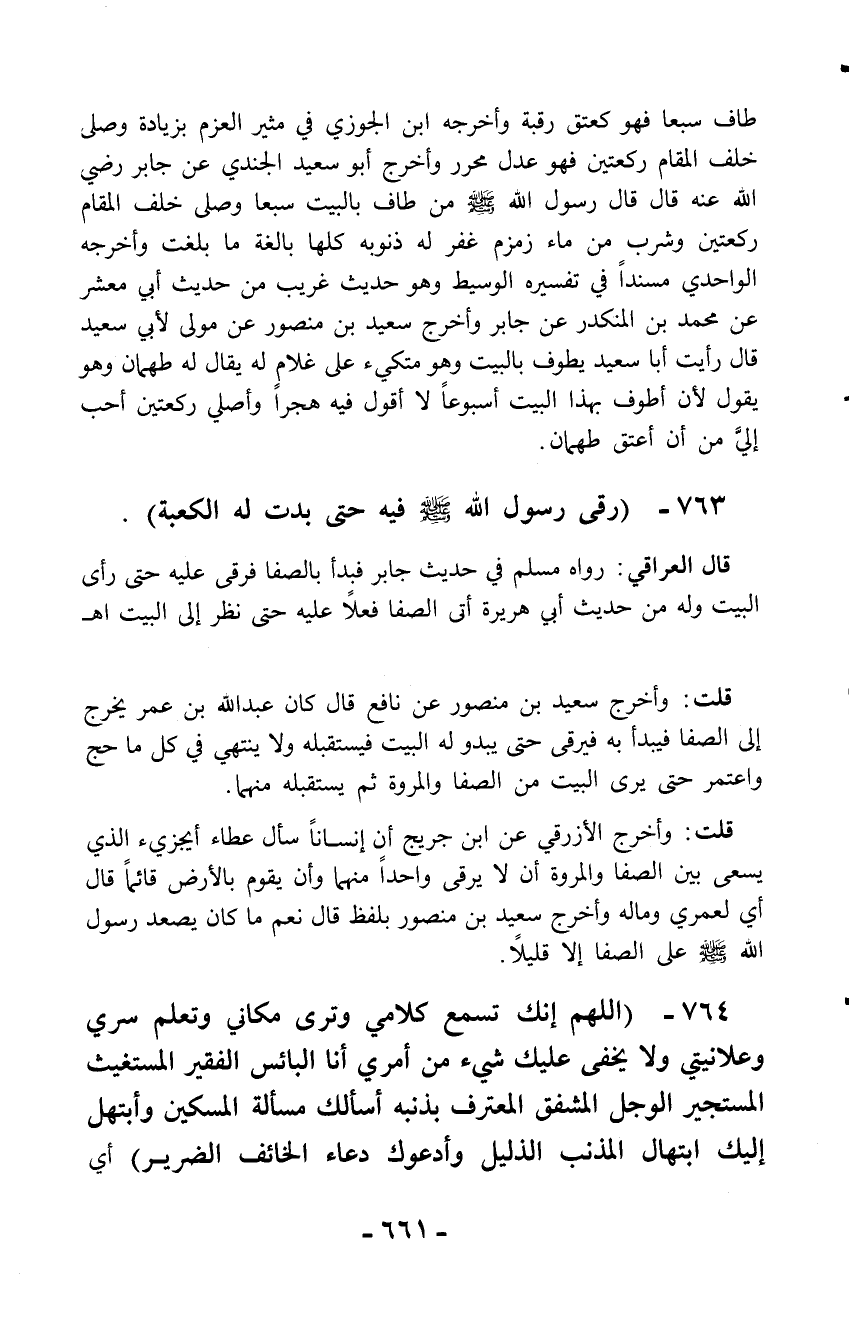 طاف سبعا فهو كعتق رقبة وأخرجه ابن الجوزي في مثير العزم بزيادة وصلى
خلف المقام ركعتين فهو عدل محرر وأخرج أبو سعيد الجندي عن جابر رضي
الله عنه قال قال رسول الله ﷺ من طاف بالبيت سبعا وصلى خلف المقام
ركعتين وشرب من ماء زمزم غفر له ذنوبه كلها بالغة ما بلغت وأخرجه
الواحدي مسنداً في تفسيره الوسيط وهو حديث غريب من حديث أبي معشر
عن محمد بن المنكدر عن جابر وأخرج سعيد بن منصور عن مولى لأبي سعيد
قال رأيت أبا سعيد يطوف بالبيت وهو متكيء على غلام له يقال له طهمان وهو
يقول لأن أطوف بهذا البيت أسبوعاً لا أقول فيه هجراً وأصلي ركعتين أحب
إليَّ من أن أعتق طهمان.
٧٦٣ - (رقى رسول الله ﷺ فيه حتى بدت له الكعبة) .
قال العراقي: رواه مسلم في حديث جابر فبدأ بالصفا فرقى عليه حتى رأى
البيت وله من حديث أبي هريرة أتى الصفا فعلاً عليه حتى نظر إلى البيت اهـ
قلت: وأخرج سعيد بن منصور عن نافع قال كان عبدالله بن عمر يخرج
إلى الصفا فيبدأ به فيرقى حتى يبدو له البيت فيستقبله ولا ينتهي في كل ما حج
واعتمر حتى يرى البيت من الصفا والمروة ثم يستقبله منهما.
قلت: وأخرج الأزرقي عن ابن جريج أن إنساناً سأل عطاء أيجزيء الذي
يسعى بين الصفا والمروة أن لا يرقى واحداً منهما وأن يقوم بالأرض قائماً قال
أي لعمري وماله وأخرج سعيد بن منصور بلفظ قال نعم ما كان يصعد رسول
الله ﷺ على الصفا إلا قليلاً.
٧٦٤ - (اللهم إنك تسمع كلامي وترى مكاني وتعلم سري
وعلانيتي ولا يخفى عليك شيء من أمري أنا البائس الفقير المستغيث
المستجير الوجل المشفق المعترف بذنبه أسألك مسألة المسكين وأبتهل
إليك ابتهال المذنب الذليل وأدعوك دعاء الخائف الضرير) أي
- ٦٦١ -